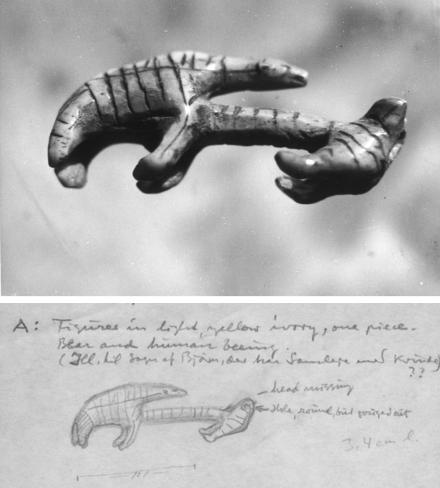 A: Figures in light, yellow ivory, one piece.
Bear and human beeing
(Ill. til Sagn af Bjørn, der har Samleje med Kvinde)
??
head missing
Hole, round, but gouged out
3,4 cm l.